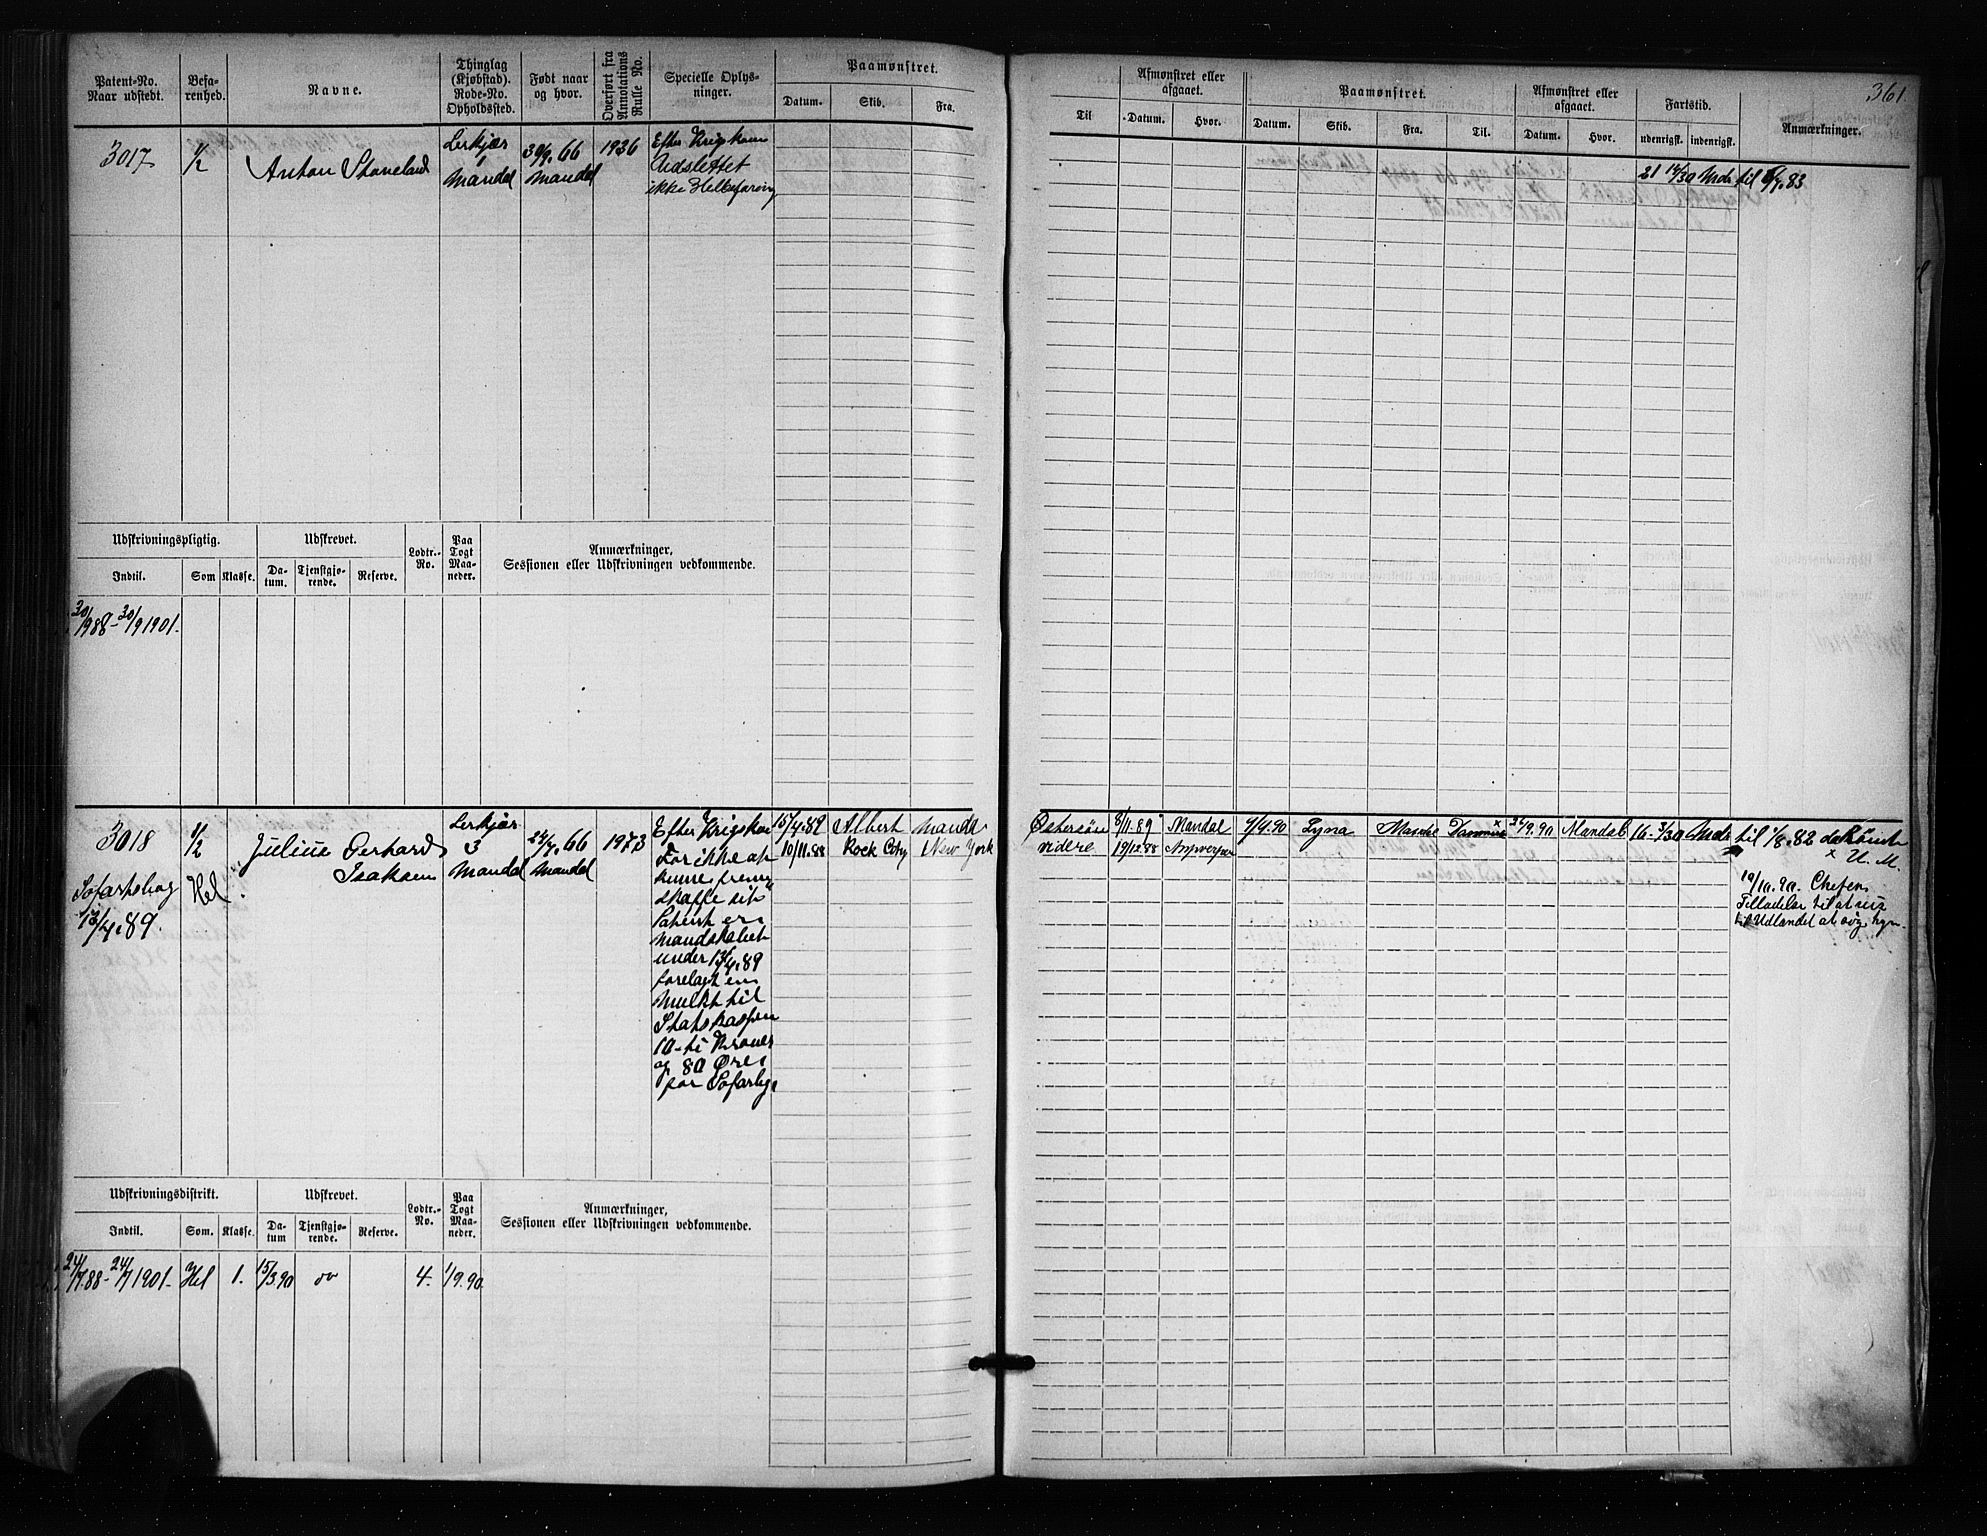 361.
Patent-No.
Naar udstedt.
Befa-
renhed.
Navne.
Thinglag
(Kjøbstad).
Rode-No.
Opholdssted.
Født naar
og hvor.
Overført fra
Annotations
Rulle No.
Specielle Oplys-
ninger.
Paamønstret.
Datum.
Skib.
Fra.
Til
Afmønstret eller
afgaaet.
Datum.
Hvor.
Paamønstret.
Datum.
Skib.
Fra.
Til.
Afmønstret eller
afgaaet.
Datum.
Hvor.
Fartstid.
udenrigsk.
indenrigsk.
Anmærkninger.
3017
1/2
Anton Staveland
Lerkjær
1
Mandal
30/9. 66
Mandal
1936
Efter Krigskom
Udslettet
ikke Helbefaring
21 14/30 Mdr til
7.83
Udskrivningspligtig.
Udskrevet.
Lodtr.-
No.
Paa
Togt
Maa-
neder.
Anmærkninger,
Sessionen eller Udskrivningen vedkommende.
Indtil.
Som
Klasse.
Da-
tum.
Tjenstgjø-
rende.
Reserve.
30/9 88 - 30/9 1901.
3018
1/2
Julius Gerhard
Isaksen
Lerkjær
3
Mandal
24/7. 66
Mandal
1973
Efter Krigskom
For ikke at
kunne frem
skaffe sit
Patent er
Mandskabet
under 13/4.89
forelagt en
Mulkt til
Statskassen
10 - ti Kroner
og 80 Øre
for Søfartsbog
Søfartsbog
13/4.89.
Hel.
15/4.89
Albert
Mandal
10/11.88
Rock City
New York
Østersøen
8/11.89
Mandal
videre
19/12.88
Antwerpen
9/4.90
Lyna
Mandal
24/9.90
Mandal
16 3/30 Mdr
til 1/8.82
U. M.
19/10.90. Chefens
Tilladelse til at reise
til Udlandet at søge hyre.
Udskrivningsdistrikt.
Udskrevet.
Lodtr.-
No.
Paa
Togt
Maa-
neder.
Anmærkninger,
Sessionen eller Udskrivningen vedkommende.
Indtil.
Som.
Klasse.
Da-
tum
Tjenstgjø-
rende.
Reserve.
24/7.88 - 24/7 1901.
Hel
1.
15/3.90
4.
1/9.90